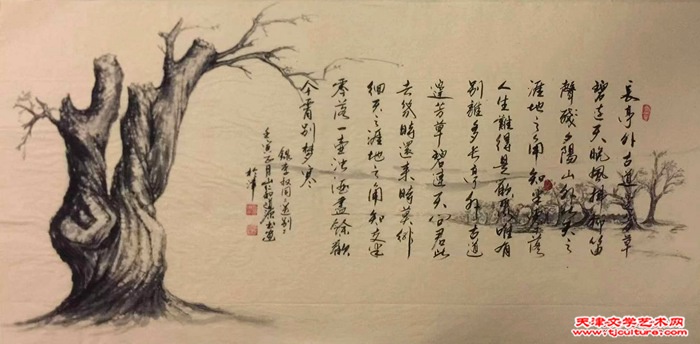 長亭外古道邊芳草
碧連天晚風拂柳笛
聲殘夕陽山外山天之
涯地之角知交半零落
人生難得是歡聚唯有
別離多長亭外古道
邊芳草碧連天问君此
去幾時還来時莫徘
徊天之涯地之角知交半
零落一壺濁酒盡餘歡
今宵別夢寒
錄李叔同送別
壬寅元月山
於津
天津文学艺术网
http://www.tjculture.com